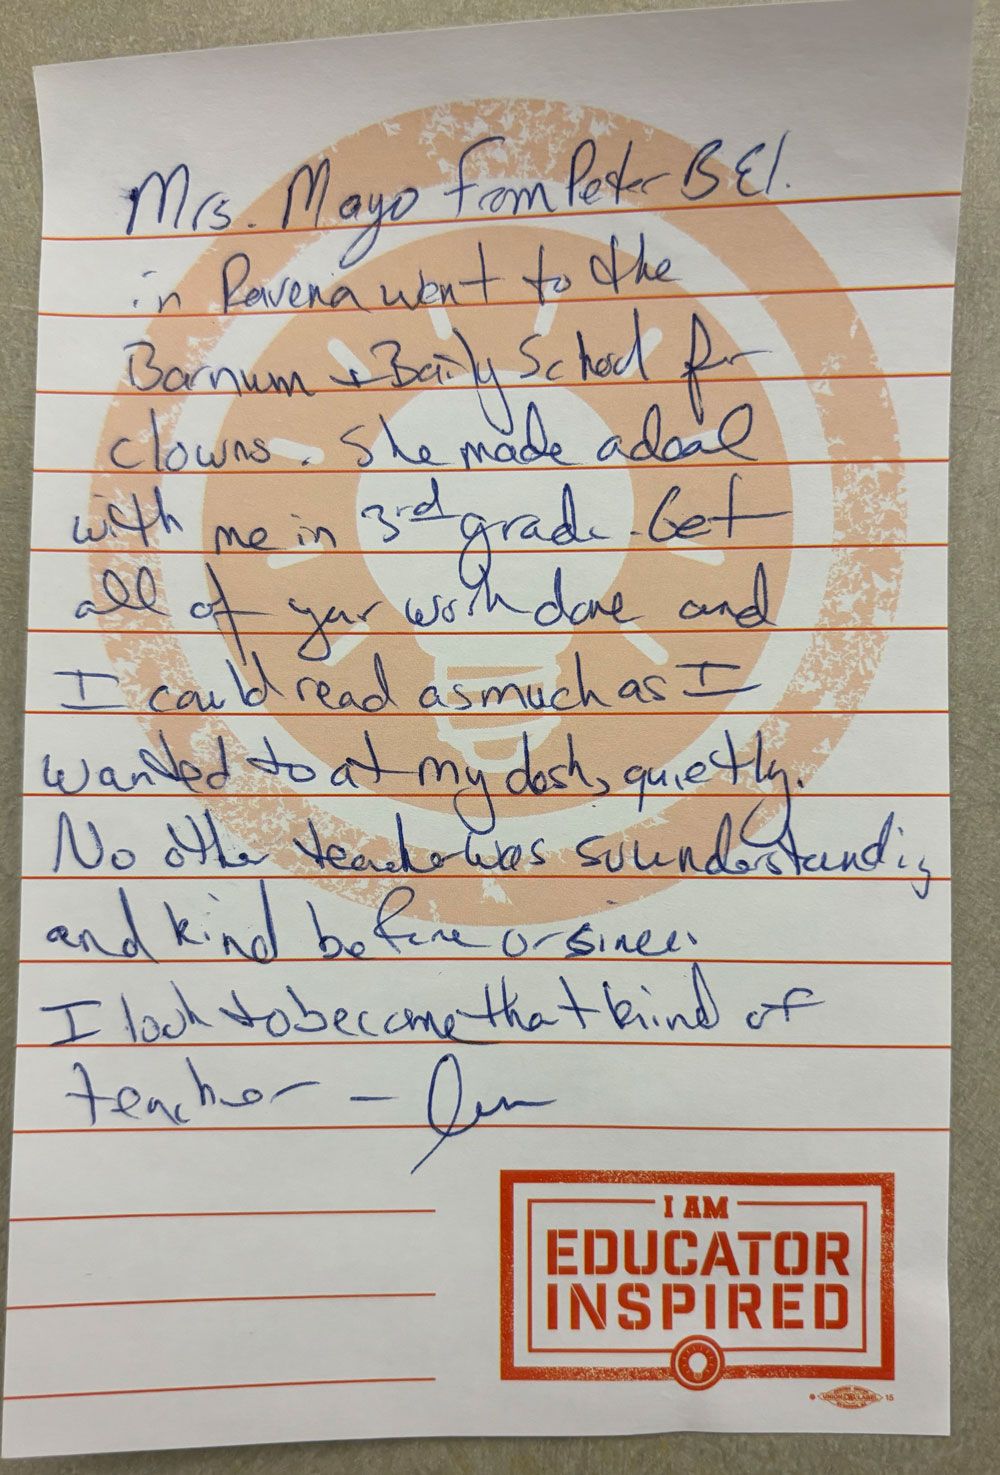 Mrs. Mayo from Peter B El.
in Ravena went to the
Barnum + Baily School for
clowns. She made a deal
with me in 3rd grade. Get
all of your work done and
I could read as much as I
wanted to at my desk, quietly.
No other teacher was so understanding
and kind before or since.
I look to become that kind of
teacher –
I AM
EDUCATOR
INSPIRED
15